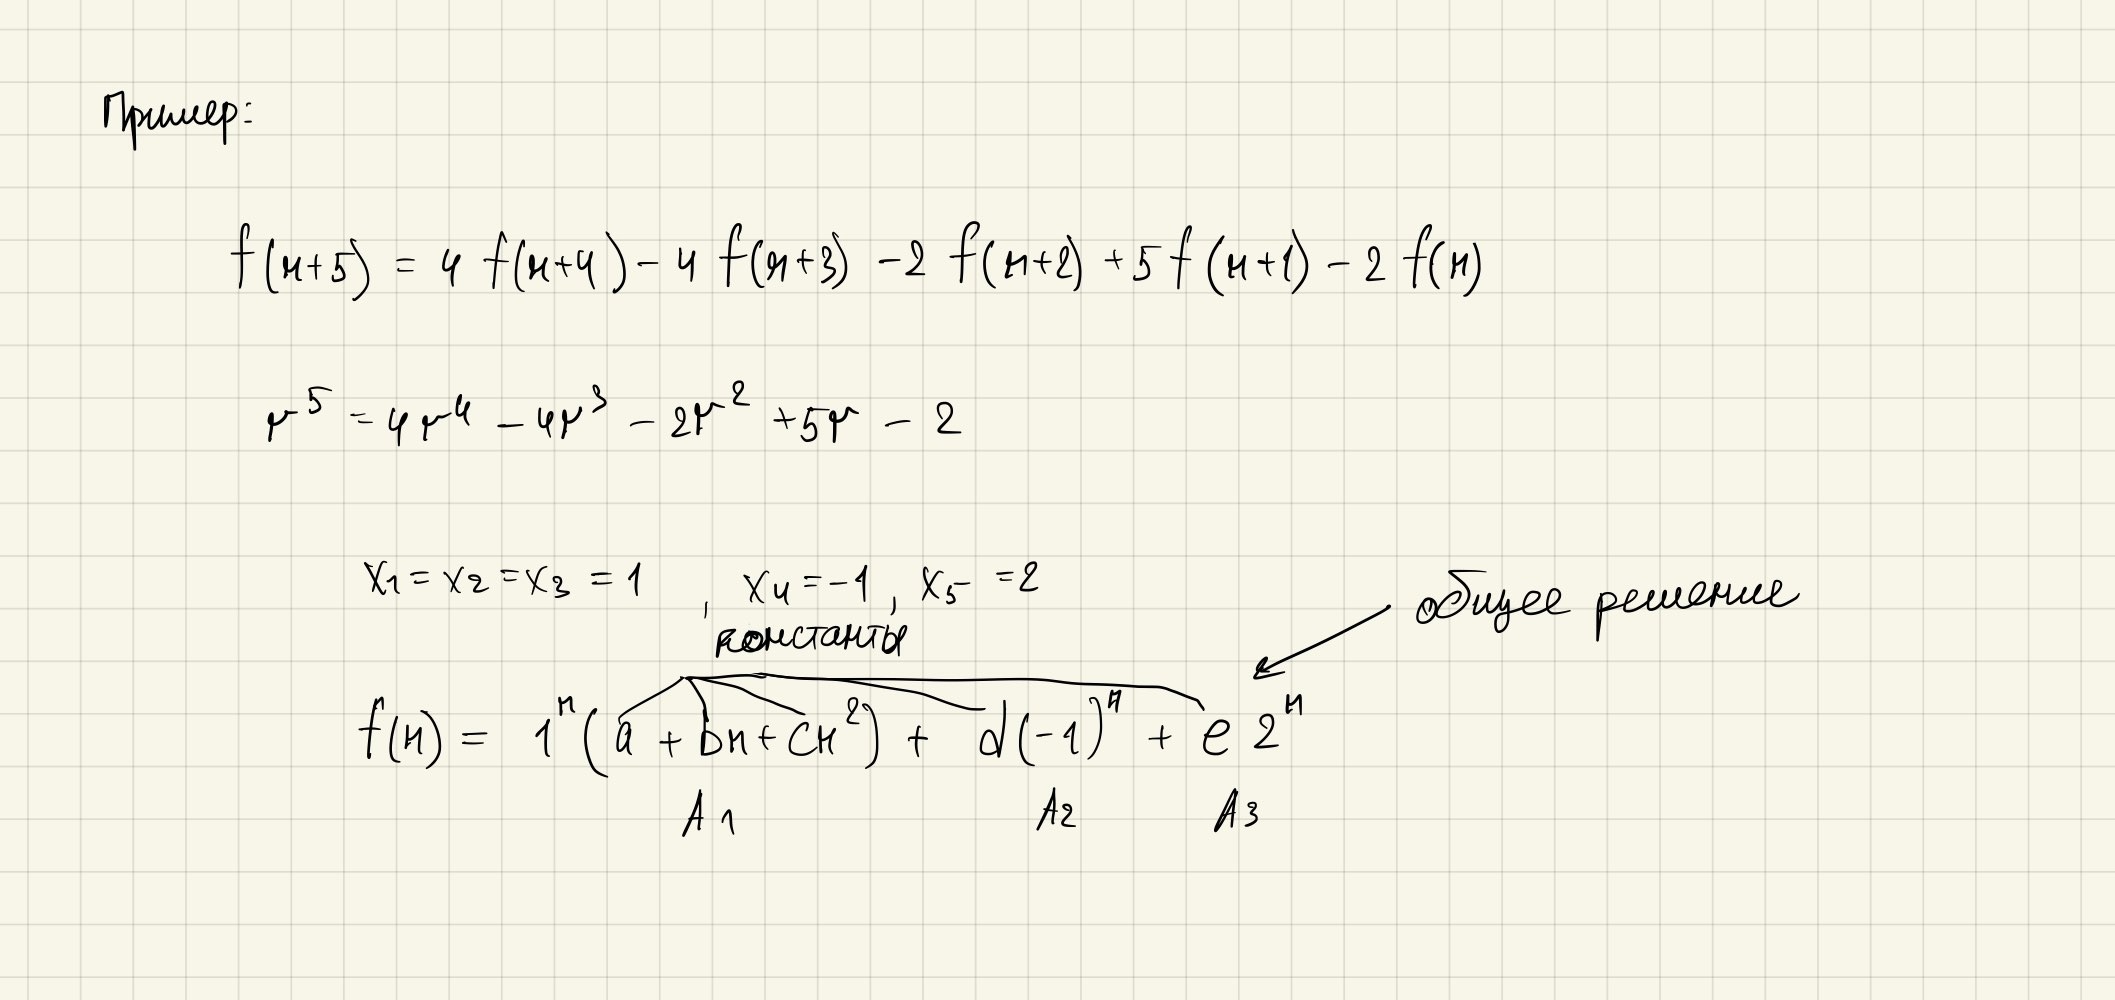 Пример:
f(n+5) = 4 f(n+4) - 4 f(n+3) - 2 f(n+2) + 5 f(n+1) - 2 f(n)
r⁵ = 4r⁴ - 4r³ - 2r² + 5r - 2
x₁ = x₂ = x₃ = 1 , x₄ = -1 , x₅ = 2
общее решение
константы
f(n) = 1ⁿ (a + bn + cn²) + d(-1)ⁿ + e 2ⁿ
A₁ A₂ A₃